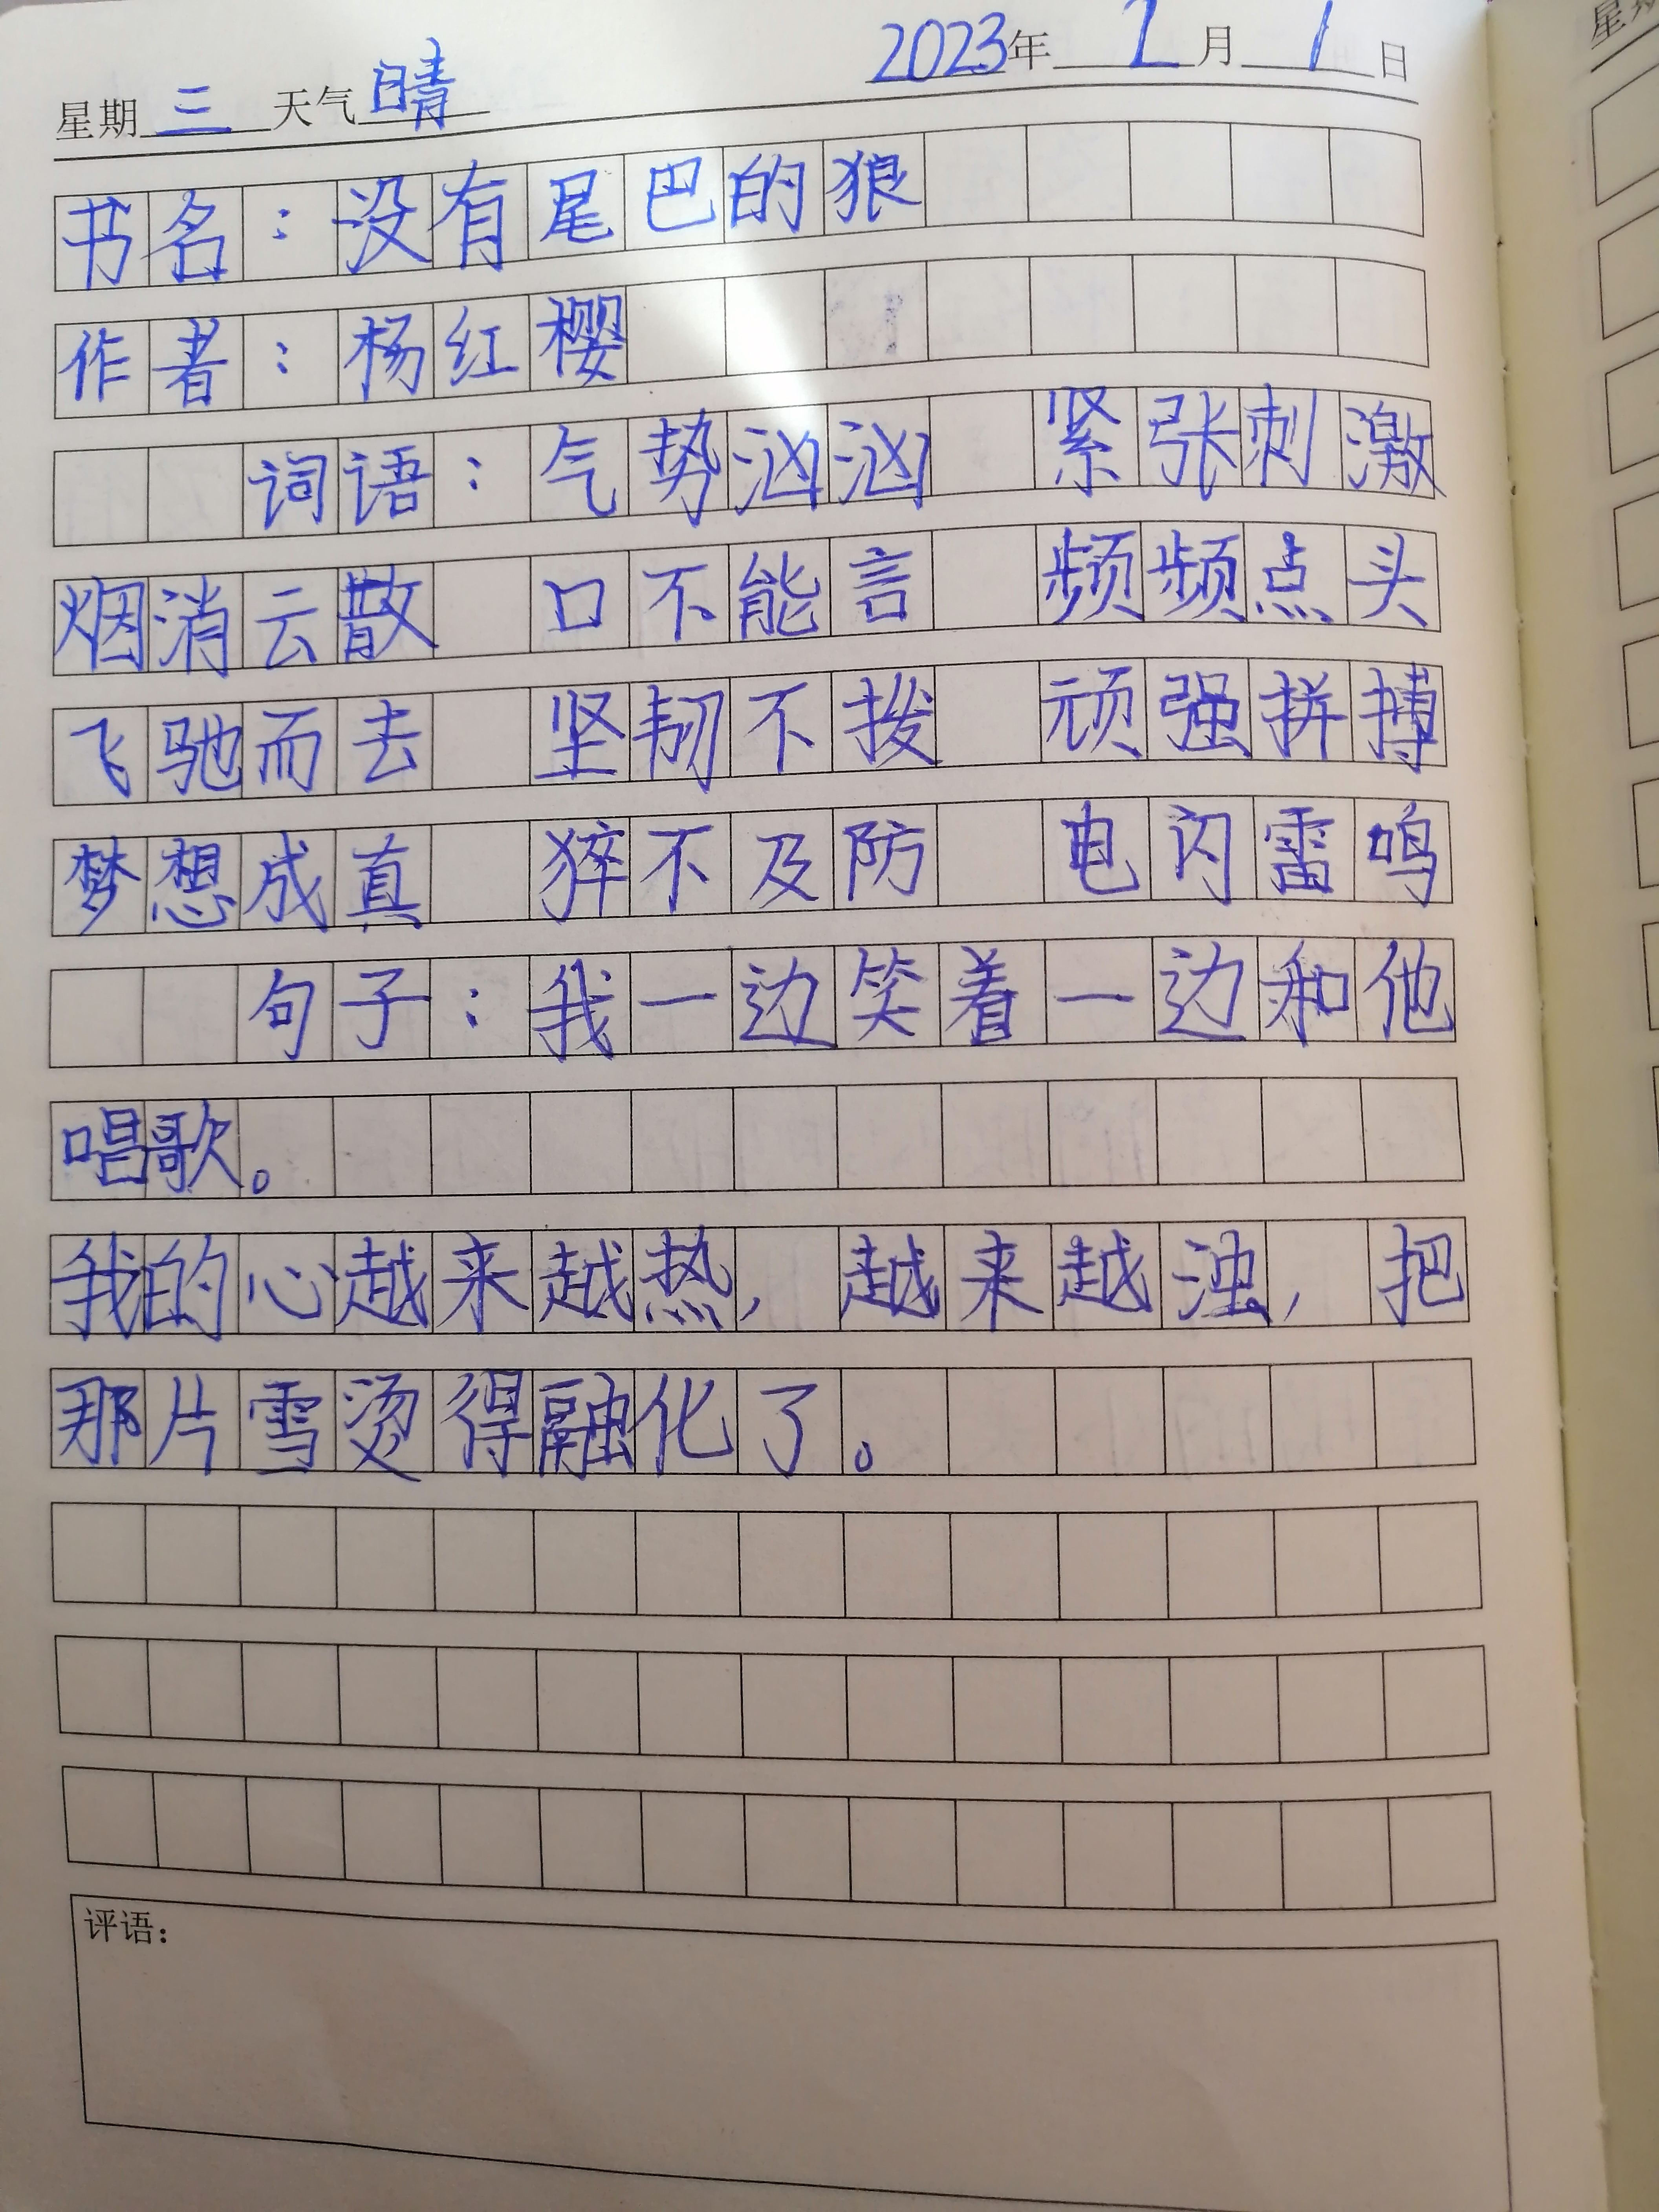 星期三天气晴 2023年2月1日
书名：没有尾巴的狼
作者：杨红樱
词语：气势汹汹 紧张刺激
烟消云散 口不能言 频频点头
飞驰而去 坚韧不拨 顽强拼搏
梦想成真 猝不及防 电闪雷鸣
句子：我一边笑着一边和他
唱歌。
我的心越来越热，越来越浊，把
那片雪烫得融化了。
评语：